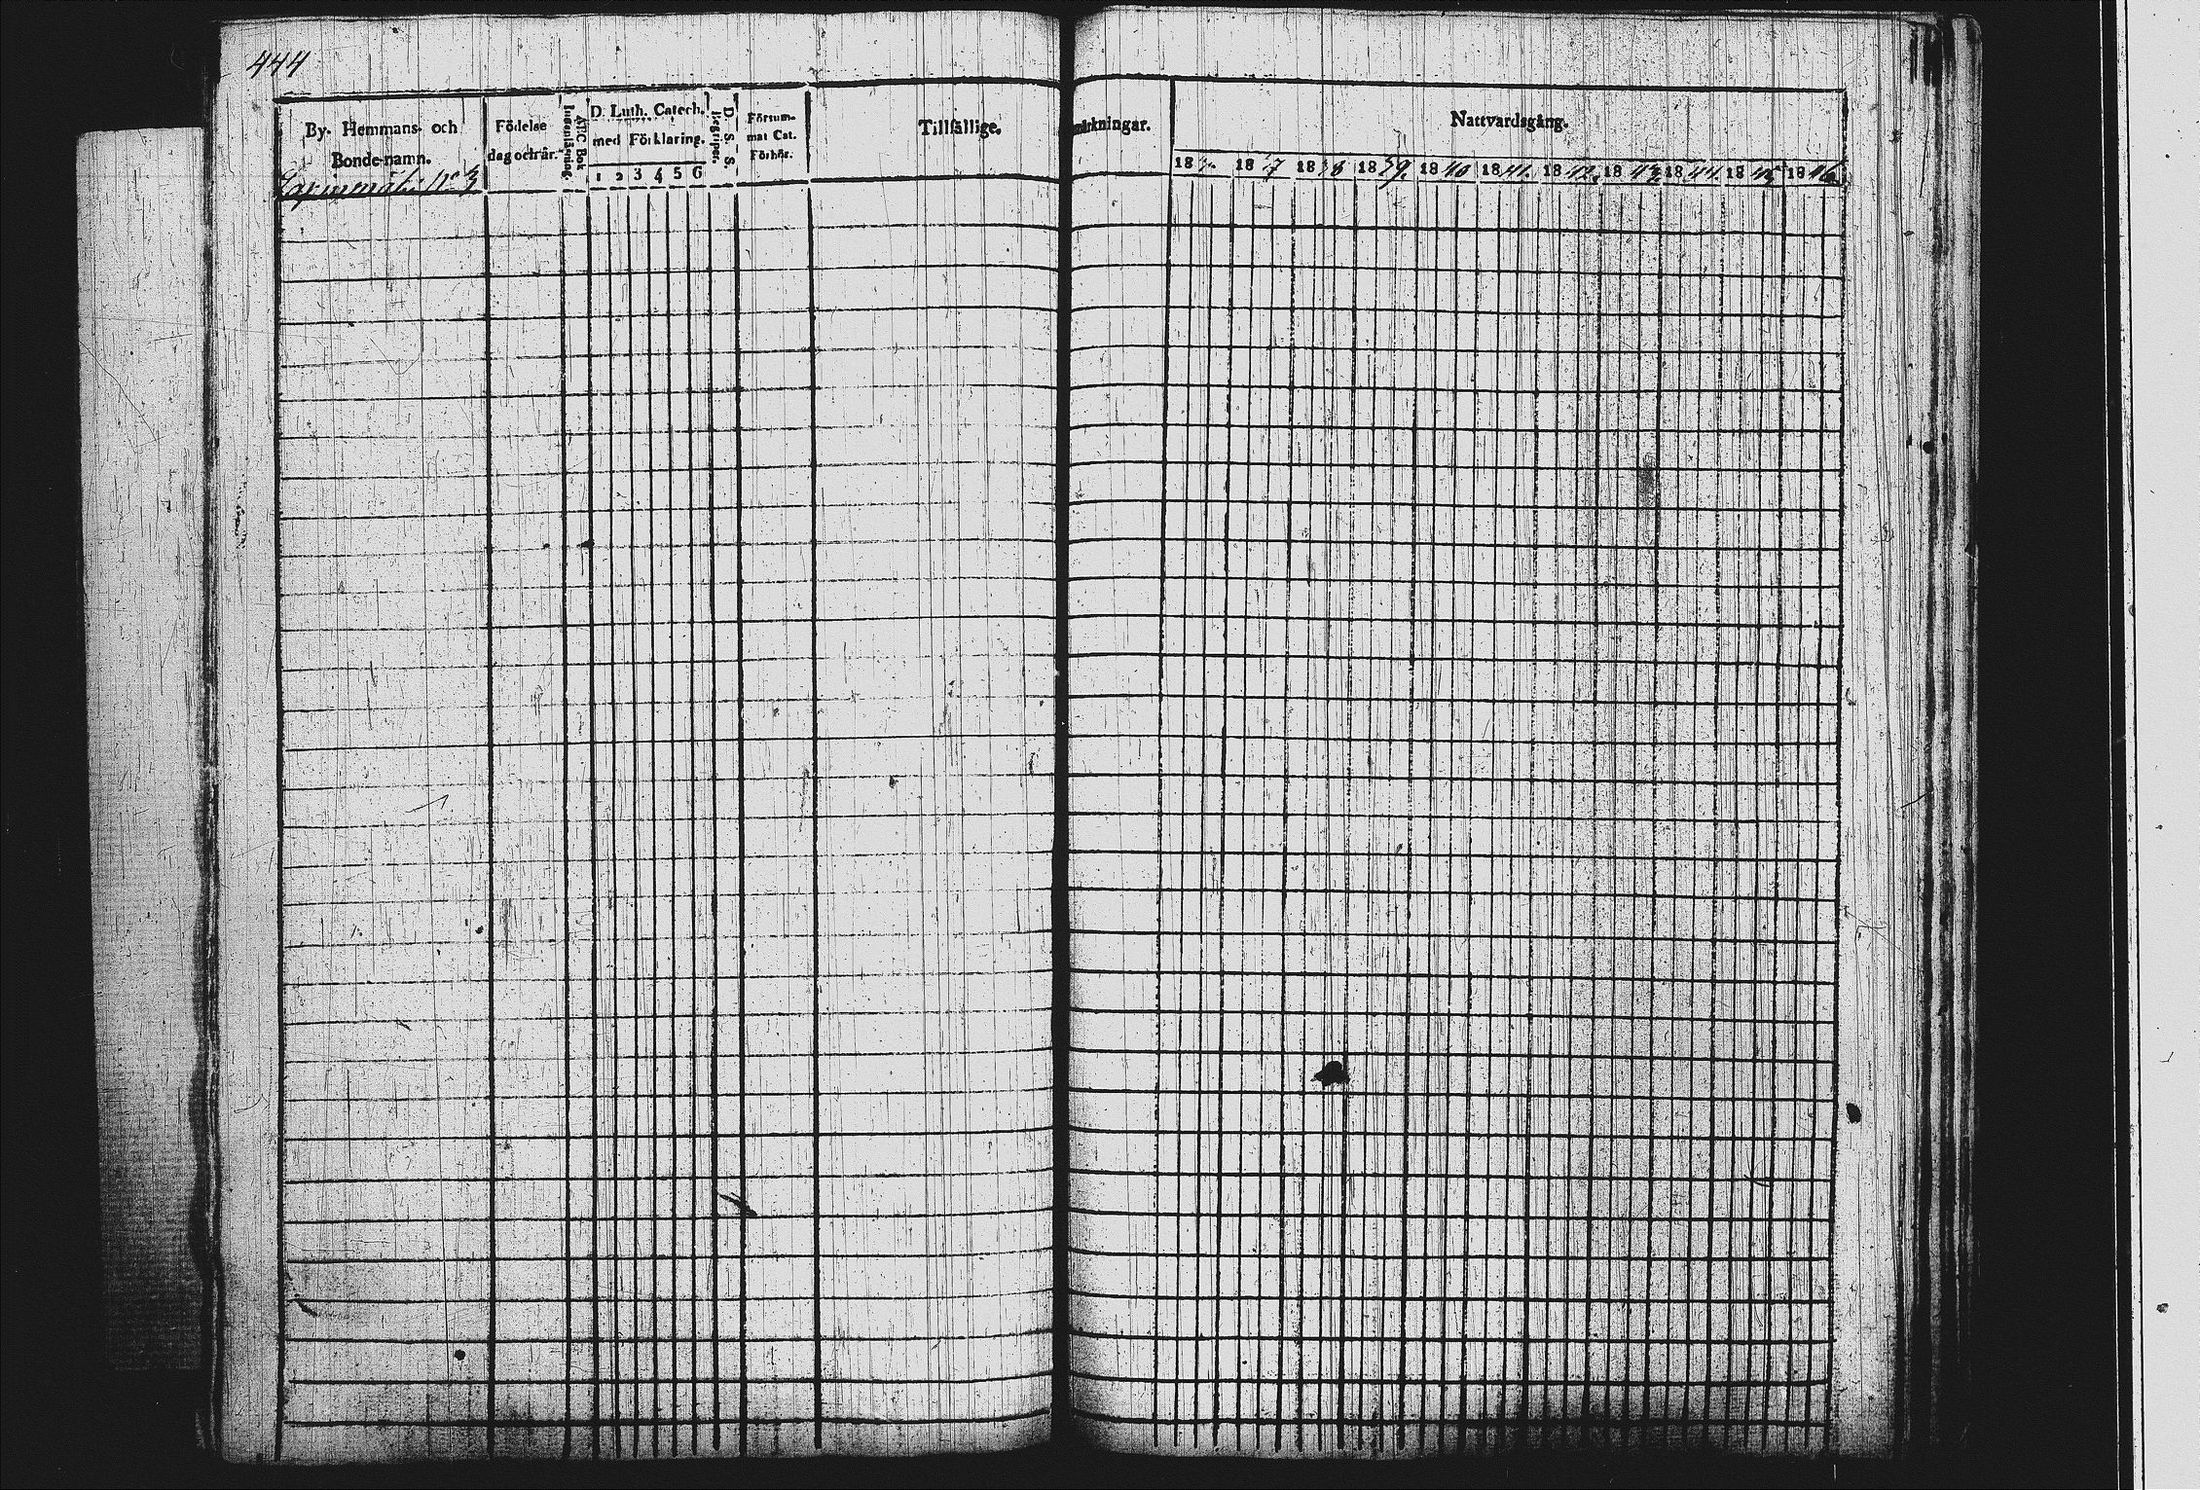 444
By- Hemmans- och Bonde-namn.
Födelse dag och år.
ABC Bok
Innanläsning.
D. Luth. Catech. med Förklaring.
1 2 3 4 5 6
D. S. S.
Begriper.
Försummat Cat. Förhör.
Tillfällige.
märkningar.
Nattvardsgång.
18 1837 1838 1839. 1840 1841. 1842. 1843 1844. 1845 1846.
N:o 3